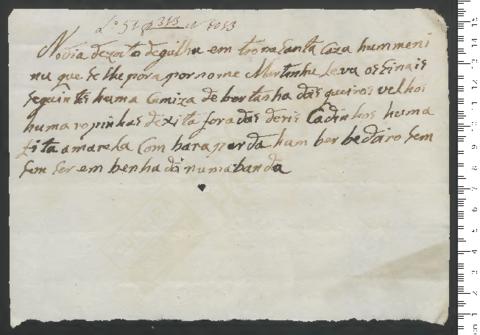 Lº 51 f 313 Nº 5053
No dia dezato de gulho em trona santa caza hum meni
nu que se lhe pora por nome Martinho leva os sinais
seguintes huma camiza de bertanha das queiros velhos
huma ropinhas de xita foradas dois Cadinhos huma
fita amarela com bara parda hum ber be dairo sem
sem ser em benhado numa banda